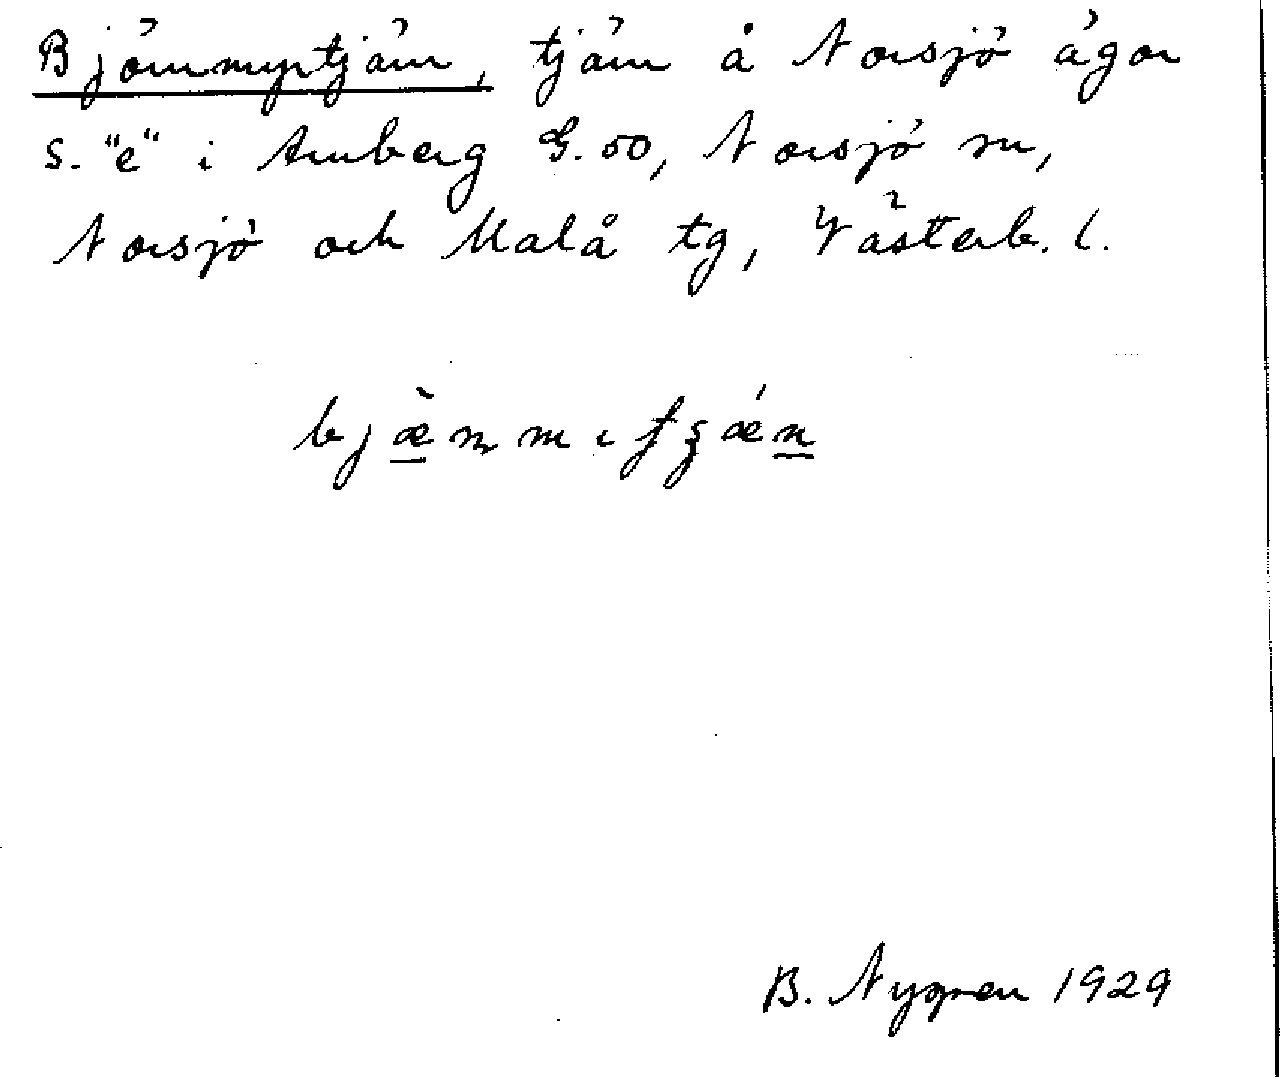 Björnmyrtjärn, tjärn å Norsjö ägor
S. "e" i Arnberg G. 50, Norsjö sn,
Norsjö och Malå tg, Västerb. l.
B. Nygren 1929